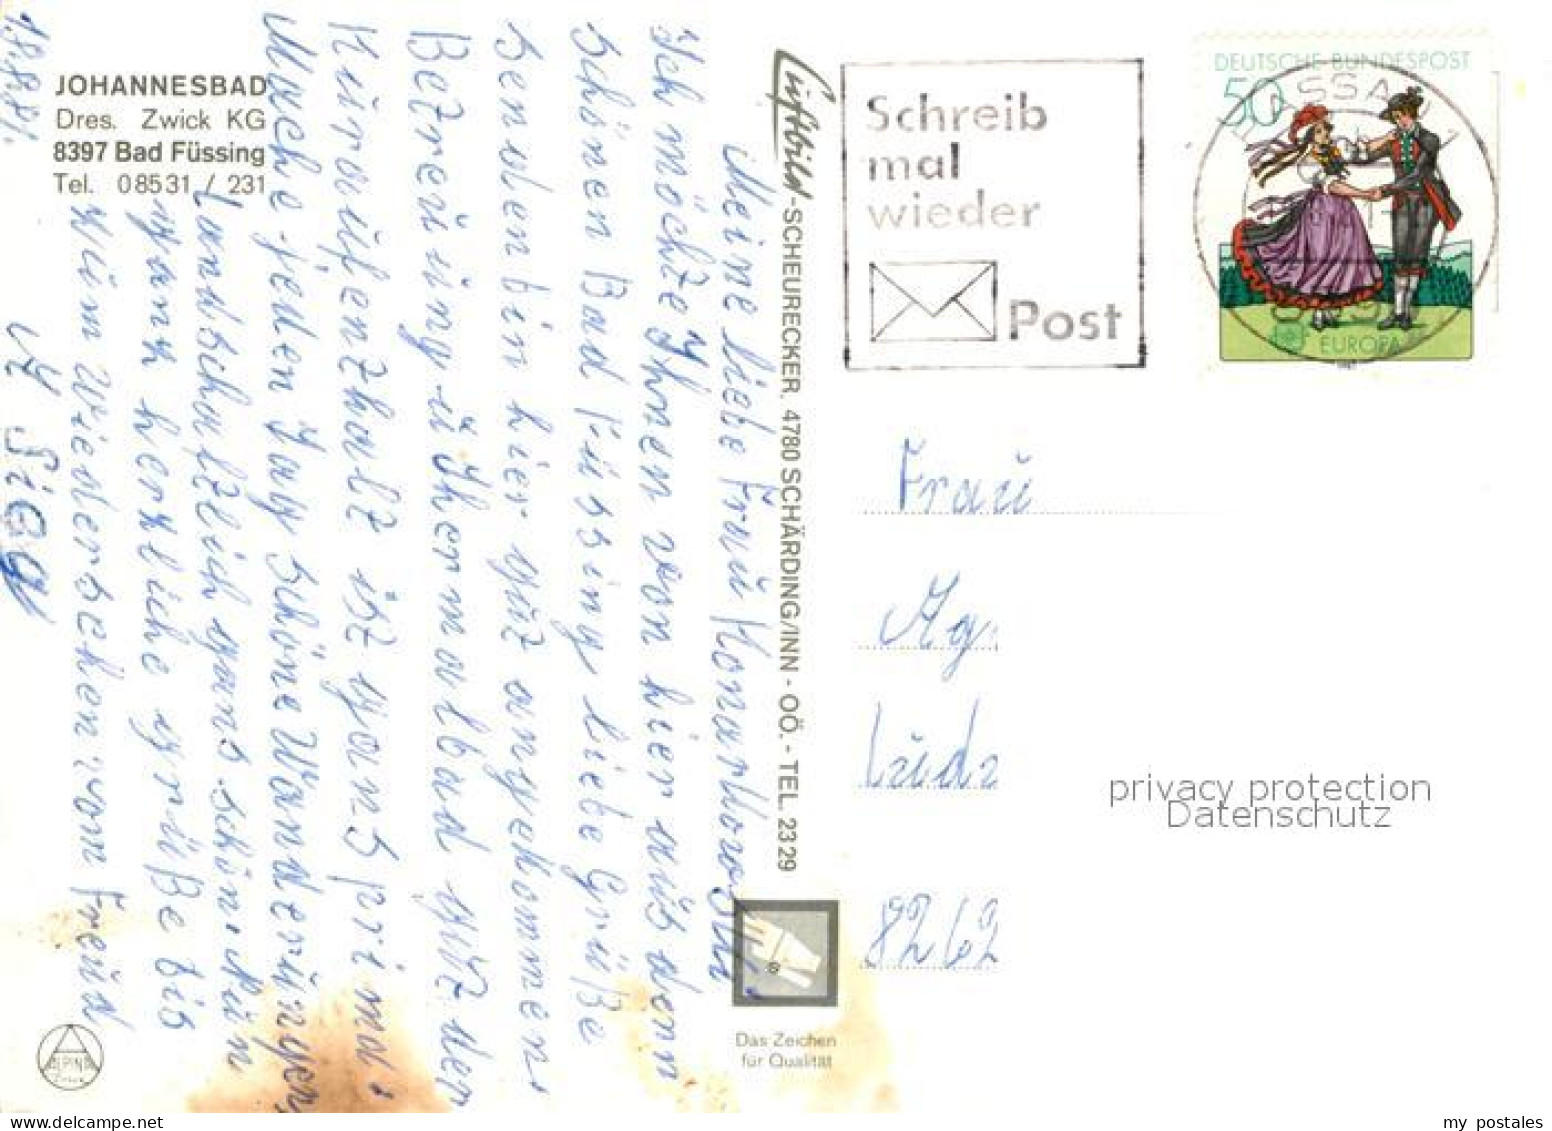 JOHANNESBAD
Dres. Zwick KG
8397 Bad Füssing
Tel. 08531 / 231
18.8.81.
Meine liebe Frau
Ich möchte Ihnen von hier aus den
schönen Bad Füssing liebe Grüße
senden bin hier gut angekommen.
Betreuung u Thermalbad gut der
Kuraufenthalt ist ganz prima.
Mache jeden Tag schöne Wanderungen,
Landschaftlich ganz schön. Nun
ganz herzliche Grüße bis
zum Wiedersehen von Freud
Luftbild-SCHEURECKER, 4780 SCHÄRDING/INN - OÖ. - TEL. 2329
Das Zeichen
für Qualität
ALPINA
Schreib
mal
wieder
Post
DEUTSCHE BUNDESPOST
50
PASSAU
EUROPA
Frau
Ag
8262
privacy protection
Datenschutz
my postales